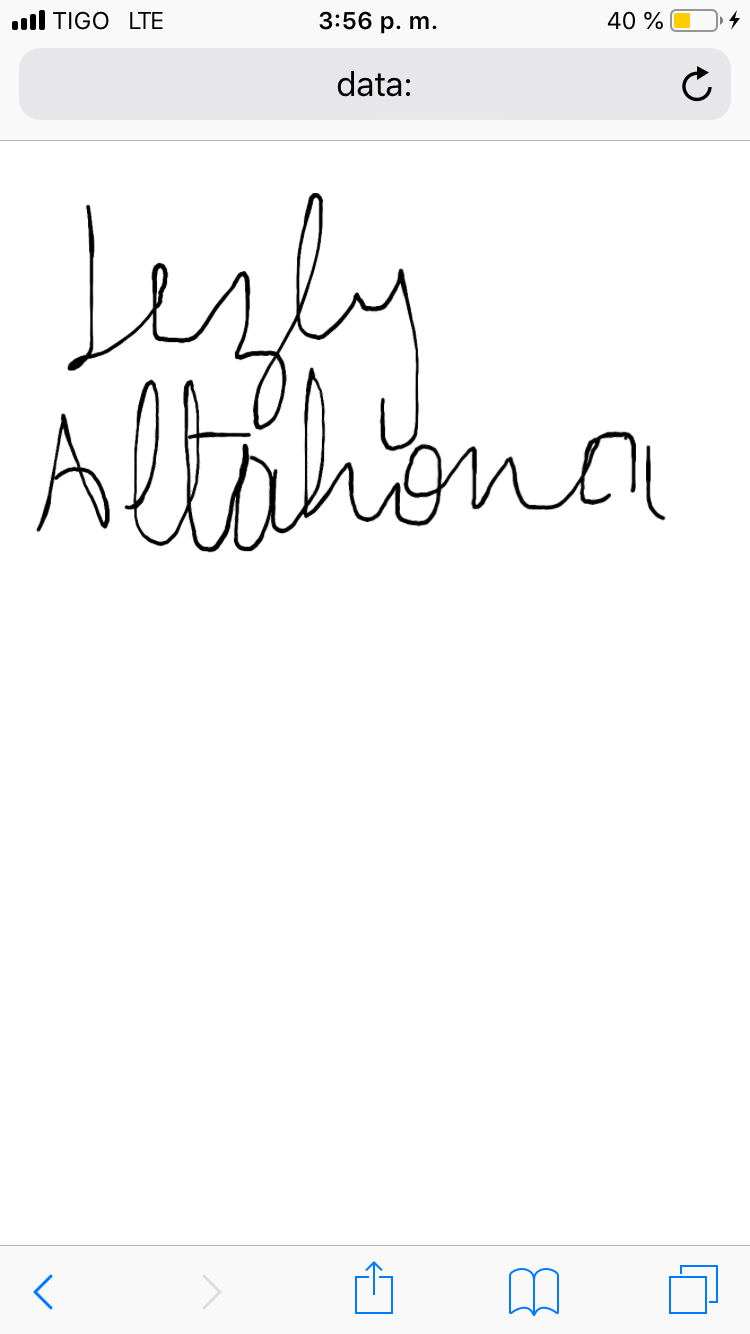 TIGO LTE 3:56 p. m. 40 %
data:
Lezly
Altahona